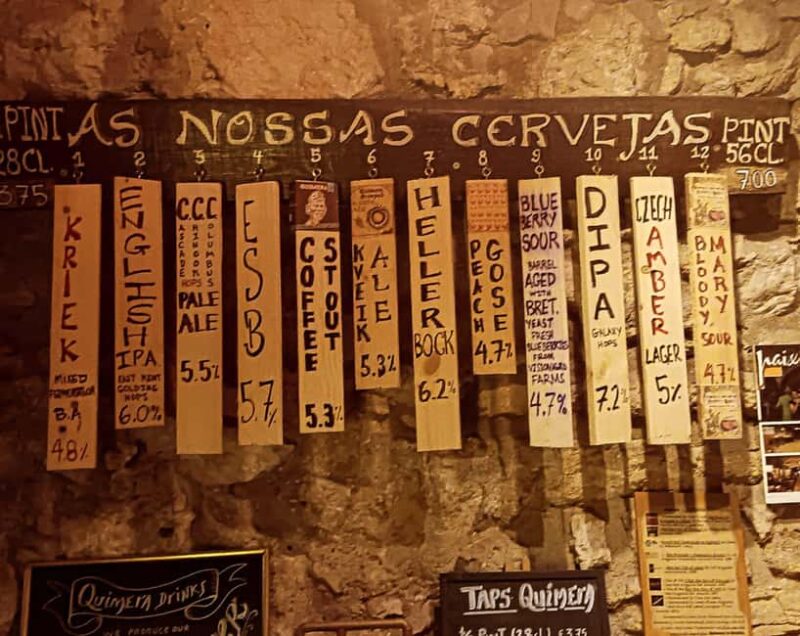 PINT AS NOSSAS CERVEJAS PINT
28CL. 56CL.
375 700
1
KRIEK
MIXED
FERMENTATION
B.A
4.8%
2
ENGLISH
IPA
EAST KENT
GOLDING
HOPS
6.0%
3
C.C.C
CASCADE
CHINOOK
COLUMBUS
HOPS
PALE
ALE
5.5%
4
ESB
5.7%
5
COFFEE
STOUT
5.3%
6
KVEIK
ALE
5.3%
7
HELLER
BOCK
6.2%
8
PEACH
GOSE
4.7%
9
BLUE
BERRY
SOUR
BARREL
AGED
WITH
BRET.
YEAST
FRESH
BLUEBERRIES
FROM
FARMS
4.7%
10
DIPA
GALAXY
HOPS
7.2%
11
CZECH
AMBER
LAGER
5%
12
BLOODY
MARY
SOUR
4.7%
QUIMERA DRINKS
WE PRODUCE OUR
TAPS QUIMERA
½ PINT (28cl) €3.75